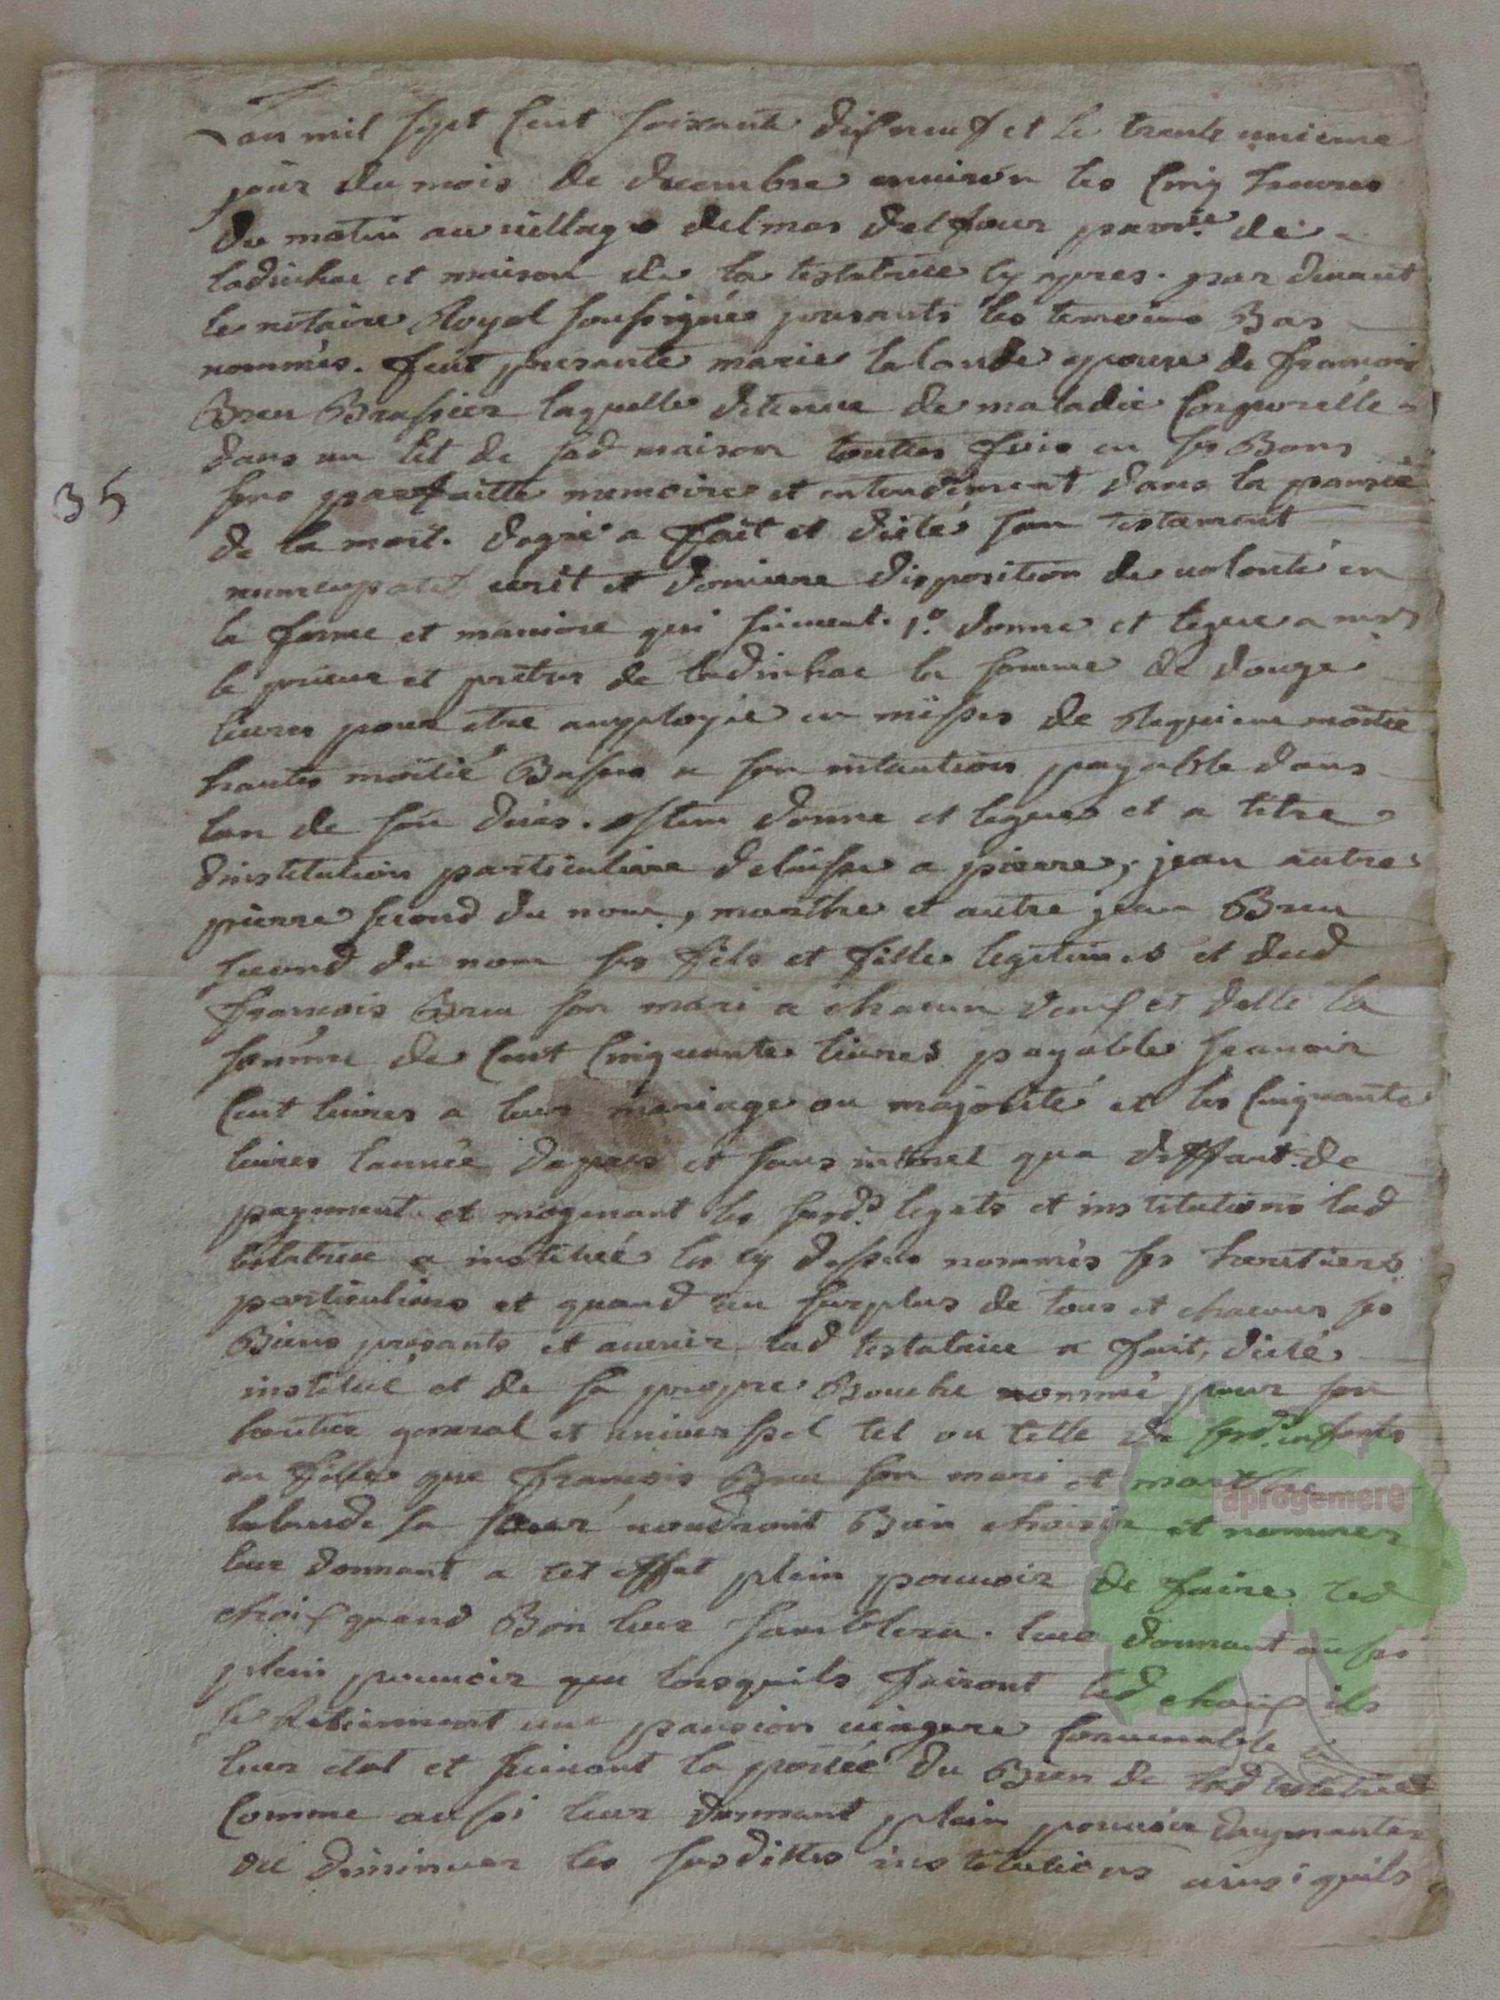 Lan mil sept cent soixante disneuf et le trante unieme
jour du mois de decembre environ les cinq heures
du matin au village delmas delfour parr.e de
ladinhac et maison de la testatrice cy apres. par devant
le notaire Royal soussigné presants les temoins Bas
nommés. feut presante marie lalande epouse de francois
Breu Brassier laquelle detenue de maladie corporelle
dans un lit de sad maison toutes fois en ses Bons
sens parfaitte memoire et entendement dans la pansée
de la mort. degré a fait et dicté son testament
nuncupatif ecrit et derniere disposition de volonté en
la forme et maniere qui suivent. 1.o donne et legue a mrs
le prieur et pretres de ladinhac la somme de douze
livres pour etre amployée en messes de Requiem moitié
hautes moitié Basses a son intantion payable dans
lan de son decés. Item donne et legue et a titre
dinstitution particuliere delaisse a pierre, jean autre
pierre second du nom, marthe et autre jean Breu
second du nom ses fils et fille legitimes et dud
francois Breu son mari a chacun deux et delle la
somme de cent cinquante livres payable scavoir
cent livres a leur mariage ou majorité et les cinquante
livres lannée dapres et sans interet qua deffaut de
payement et moyenant les susd.s legats et institutions lad
testatrice a institué les cy dessus nommés ses heretiers
particuliers et quand au surplus de tous et chacuns ses
Biens presants et avenir lad testatrice a fait, dicté
institué et de sa propre Bouche nommé pour son
heretier general et universsel tel ou telle de sesd.s enfants
ou fille que francois Breu son mari et marthe
lalande sa sœur voudront Bien choisir et nommer
leur donnant a cet effet plein pouvoir de faire led
choix quand Bon leur samblera. leur donnant aussi
plein pouvoir que lorsquils fairont led choix ils
se Retiennent une pansion viagere convenable a
leur etat et suivant la portée du Bien de lad testatrice
comme aussi leur donnant plein pouvoir daugmanter
ou diminuer les susdittes institutions ainsi quils
35
aprogemere